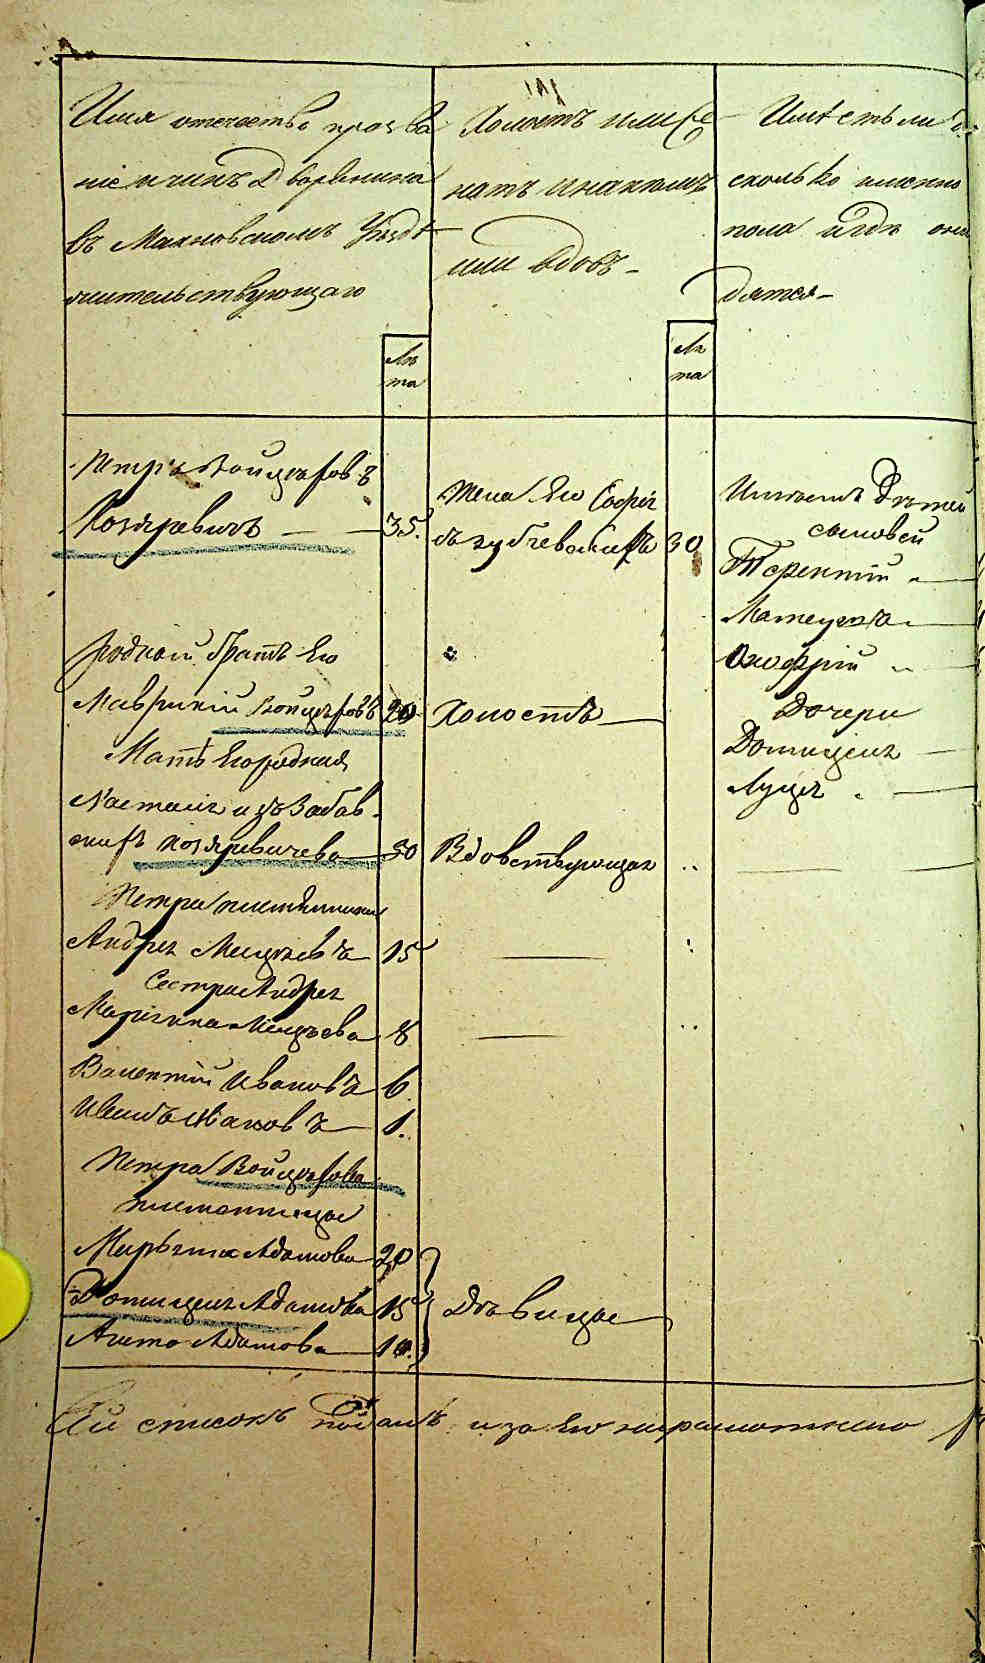 Имя отечество прозва
ніе и чинъ Дворянина
въ Махновскомъ Уѣздѣ
жительствующаго
Лѣ
та
Холостъ или же
натъ и на комъ
или вдовъ
Лѣ
та
Имѣетъ ли
сколько именно
пола и гдѣ они
дятся
Петръ Войцѣховъ
Козяревичъ 35.
Жена Его Софія
съ 30
Имѣетъ Дѣтей
сыновей
Терентій
Матеушъ
Онофрій
Дочери
Домицеля
Луція
родной братъ Его
Маврикій Войцѣховъ 20 Холостъ
Мать Его родная
Настасія изъ Забав
скихъ Козяревичева 50 Вдовствующая
Петра племянники
Андрей 15
Сестра Андрея
Маріянна 8
Валентій Ивановъ 6
Ивановъ 1.
Петра Войцѣхова
племянницы
Марьяна Адамова 20
Домицеля Адамова 15 Дѣвицы
Адамова 10.
Сей списокъ подалъ и за Его неграмотного